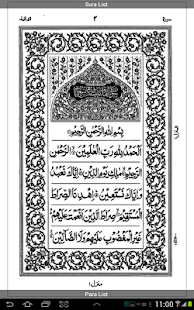 Sura List
٢
بِسْمِ اللهِ الرَّحْمٰنِ الرَّحِيْمِ
اَلْحَمْدُ لِلّٰهِ رَبِّ الْعٰلَمِيْنَ الرَّحْمٰنِ
الرَّحِيْمِ مٰلِكِ يَوْمِ الدِّيْنِ اِيَّاكَ نَعْبُدُ
وَاِيَّاكَ نَسْتَعِيْنُ اِهْدِنَا الصِّرَاطَ
الْمُسْتَقِيْمَ صِرَاطَ الَّذِيْنَ اَنْعَمْتَ عَلَيْهِمْ
غَيْرِ الْمَغْضُوْبِ عَلَيْهِمْ وَلَا الضَّآلِّيْنَ
منزل ١
Para List
11:00